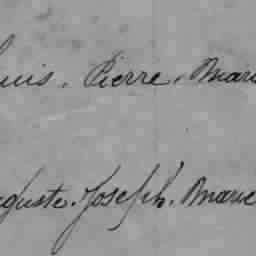 uis, Pierre, Mari
guste, Joseph, Marie